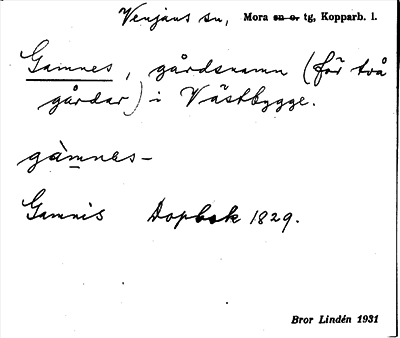 Venjans sn, Mora sn o. tg, Kopparb. l.
Gamnes, gårdsnamn (för två
gårdar) i Västbygge.
gàmnes-
Gamnis Dopbok 1829.
Bror Lindén 1931